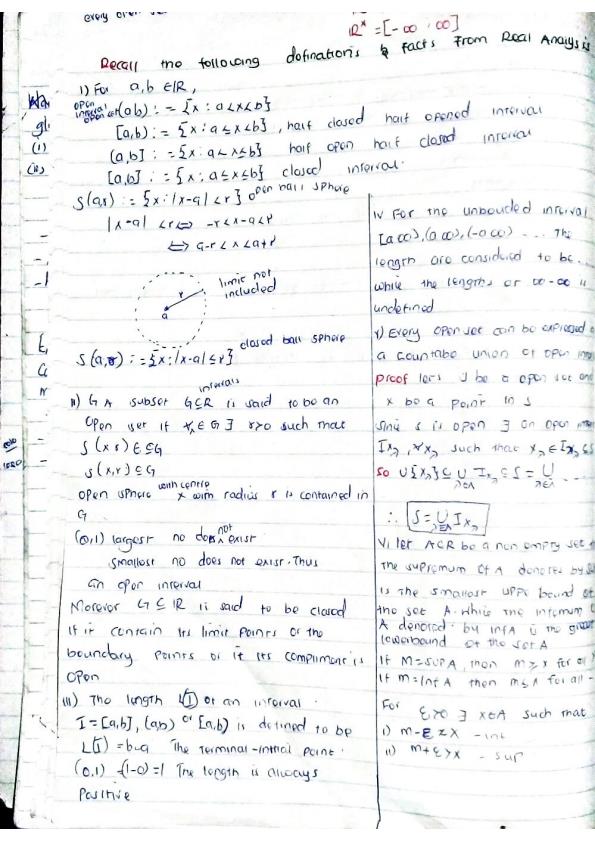 every open se
IR* = [-∞ , ∞]
Recall the following definations & facts From Real Analysis
1) For a,b ∈ IR,
open interval
open set (a b) : = {x : a < x < b}
[a,b) : = {x : a ≤ x < b} , half closed half opened interval
(a,b] : = {x : a < x ≤ b} half open half closed interval
[a,b] : = {x : a ≤ x ≤ b} closed interval.
S(a,r) : = {x : |x-a| < r} open ball sphere
|x-a| < r ⇔ -r < x-a < r
⇔ a-r < x < a+r
limit not
included
r
a
closed ball sphere
S(a,r) : = {x : |x-a| ≤ r}
intervals
ii) G A subset G ⊆ IR is said to be an
open set if ∀x ∈ G ∃ r>0 such that
S(x r) ∈ ⊆ G
S(x,r) ⊆ G
open sphere with centre x with radius r is contained in
G
(0,1) largest no does not exist
smallest no does not exist. Thus
an open interval
Morever G ⊆ IR is said to be closed
if it contain its limit points or the
boundary points or if its compliment is
open
iii) The length L(I) of an interval
I = [a,b], (a,b) or [a,b) is defined to be
L(I) = b-a The terminal-initial point.
(0,1) (1-0)=1 The length is always
Positive
iv For the unbouded interval
[a ∞), (a ∞), (-∞ ∞) ... The
length are considered to be
while the lengths or ∞-∞ is
undefined
v) Every open set can be expressed
a countabe union of open
proof let s J be a open set and
x be a point in s
since s is open ∃ an open
I x λ , ∀ x λ such that x λ ∈ I x λ ⊆ S
So ∪{x λ} ⊆ ∪ I x λ ⊆ S = ∪ ....
λ∈Λ λ∈Λ
∴ S = ∪ I x λ
λ∈Λ
Vi let A⊂R be a non empty set
The supremum of A denoted by
is the smallest upper bound of
the set A. while the infemum
A denoted by infA is the
lowerbound of the set A
If M = sup A, then m ≥ x for all
If m = inf A then m ≤ x for all
For ε>0 ∃ x∈A such that
i) m-ε ≤ x - int
ii) m+ε > x - sup